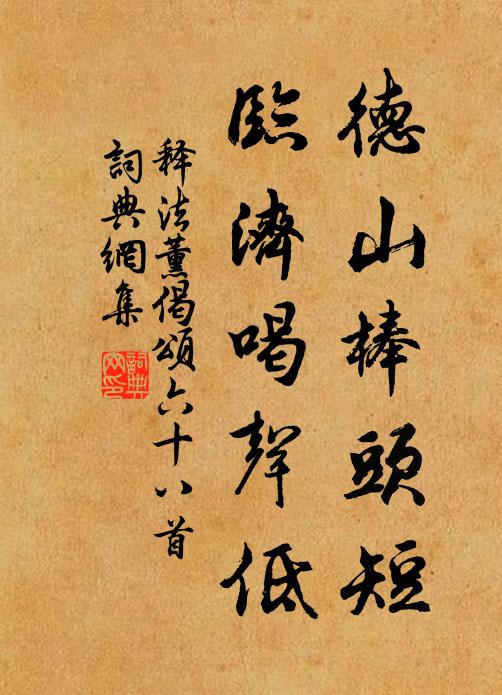 德山棒頭短
臨濟喝聲低
释法薰偈頌六十八首
詞典網集
詞典網印